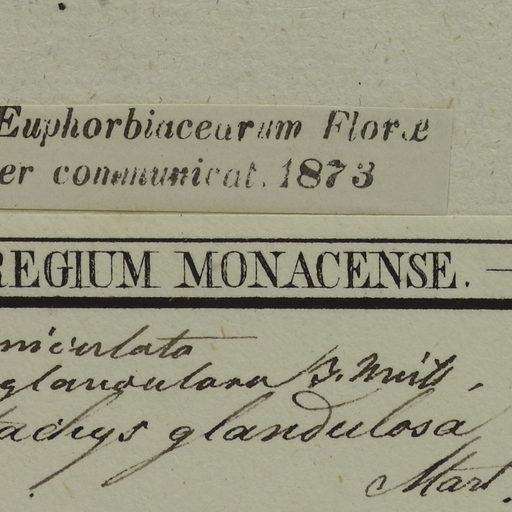 Euphorbiacearum Floræ
er communicat. 1873
REGIUM MONACENSE. —
niculata
glandulosa
achys glandulosa
Mart.